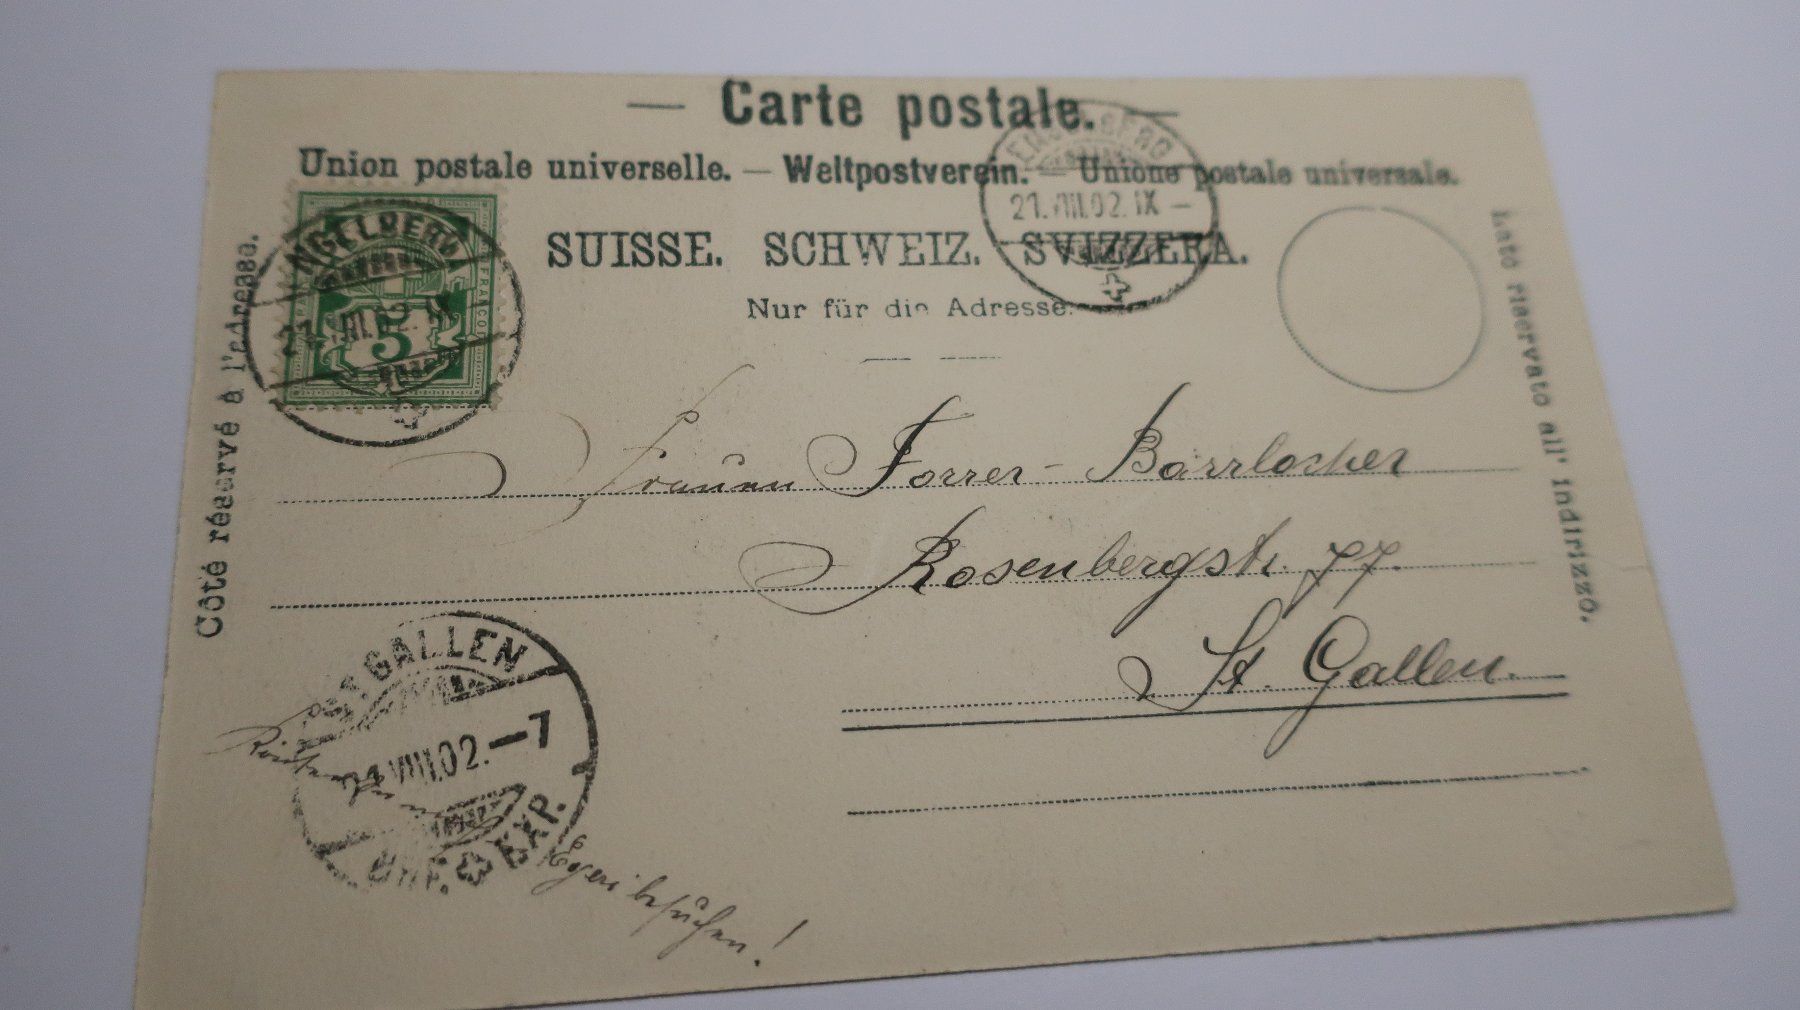 Carte postale.
Union postale universelle. — Weltpostverein. — Unione postale universale.
SUISSE. SCHWEIZ. SVIZZERA.
Nur für die Adresse.
Côté réservé à l'adresse.
Lato riservato all' indirizzo.
FRANCO
5
ENGELBERG
21.VIII.02.IX
ENGELBERG
21.VIII.02.IX –
Frauen Forrer-Baerlocher
Rosenbergstr. 77.
St. Gallen.
ST. GALLEN
21.VIII.02.–7
BRF. EXP.
Egeri besuchen!